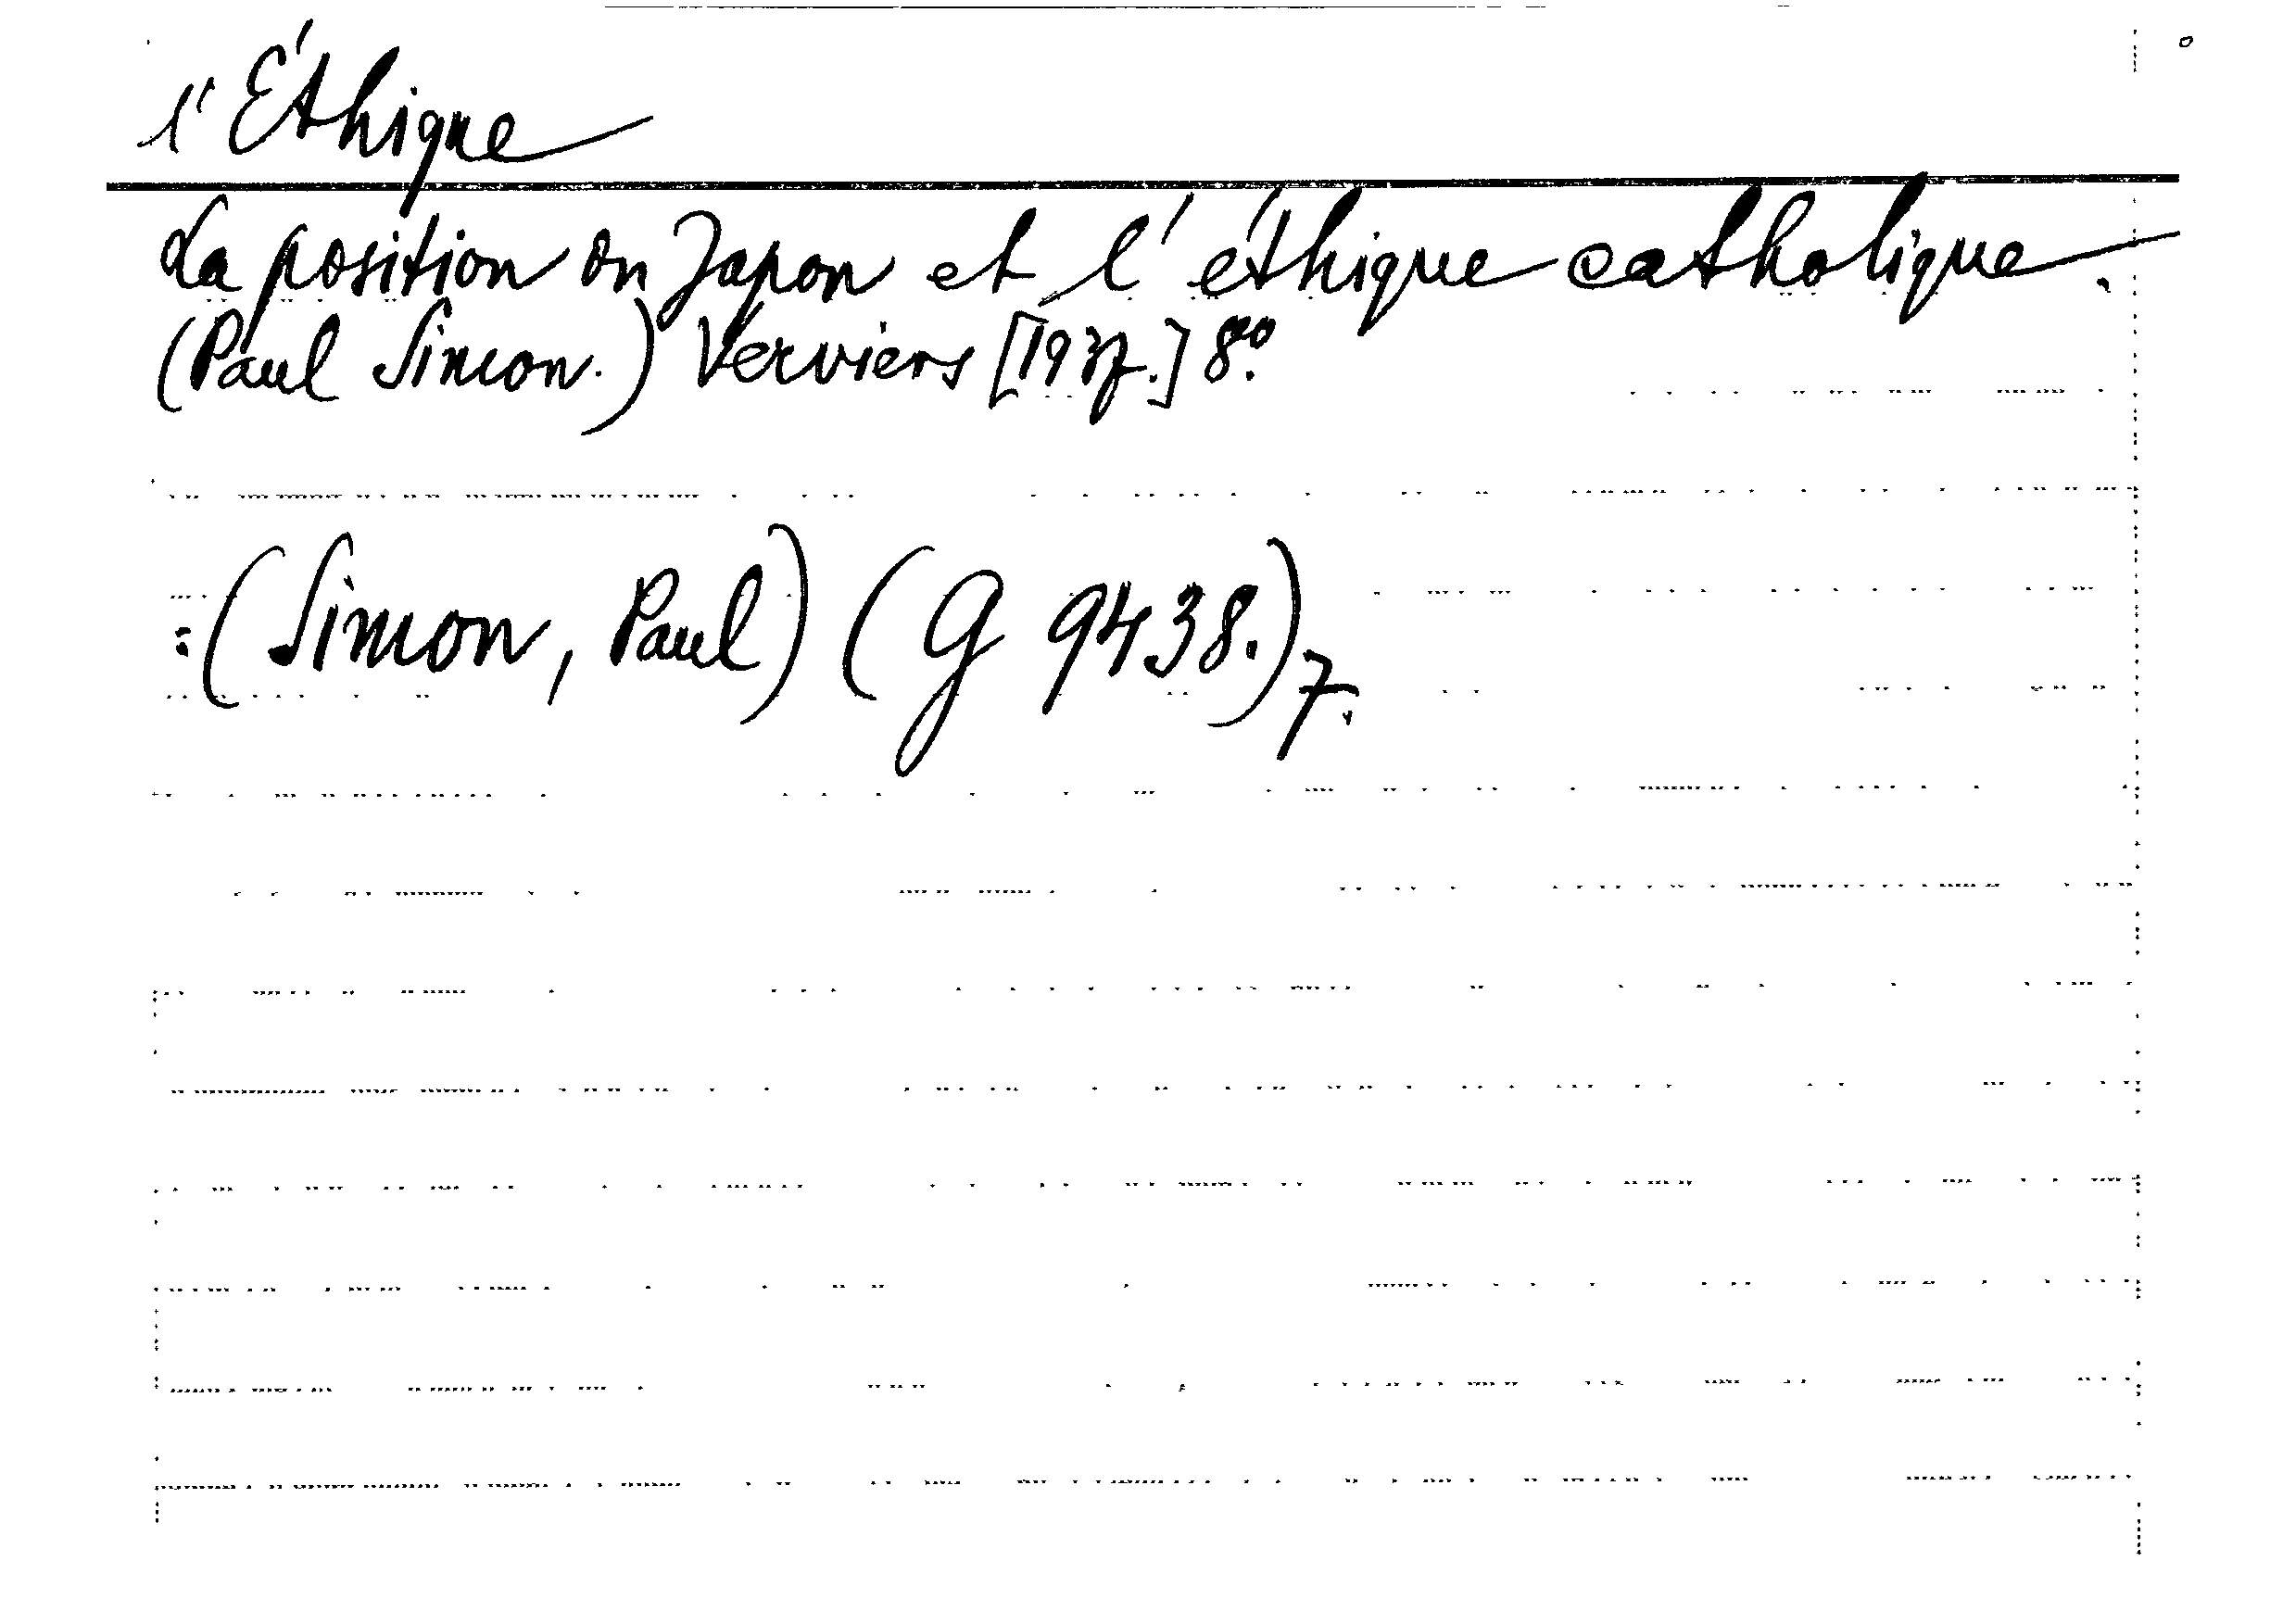 l'Éthique
La position du Japon et l'éthique catholique.
(Paul Simon.) Verviers [1937.] 8vo.
:(Simon, Paul) (G 9438.)7.